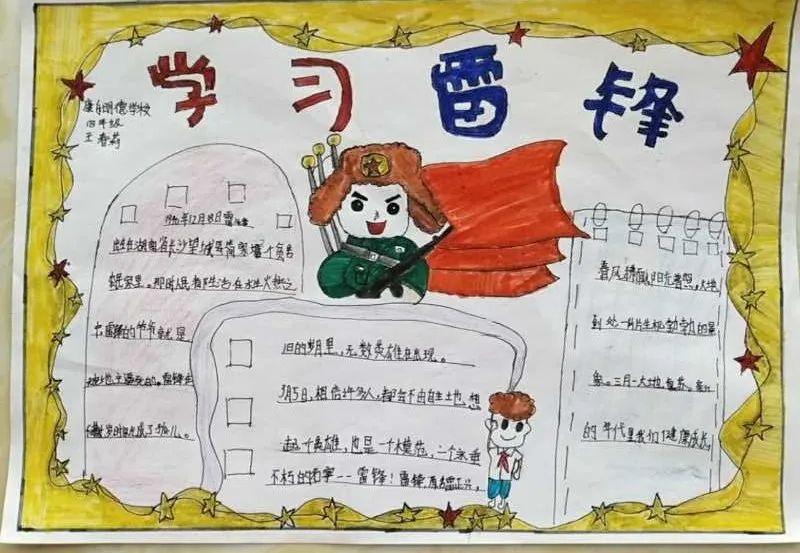 学习雷锋
明德学校
四年级
王春莉
1940年12月18日雷
出生在湖南省长沙望城县简家塘一个贫苦
农民家里。那时人民都生活在水生火热之
中雷锋的爷爷就是
被地主逼死的。雷锋
岁时就成了孤儿。
旧的岁月里，无数英雄在出现。
3月5日，相信许多人，都会不由自主地，想
起一个英雄，也是一个模范，一个永垂
不朽的故事--雷锋！雷锋，原名雷正兴，
春风拂面，阳光普照，大地
到处一片生机勃勃的景
象。三月一大地复苏。
的年代里我们健康成长，